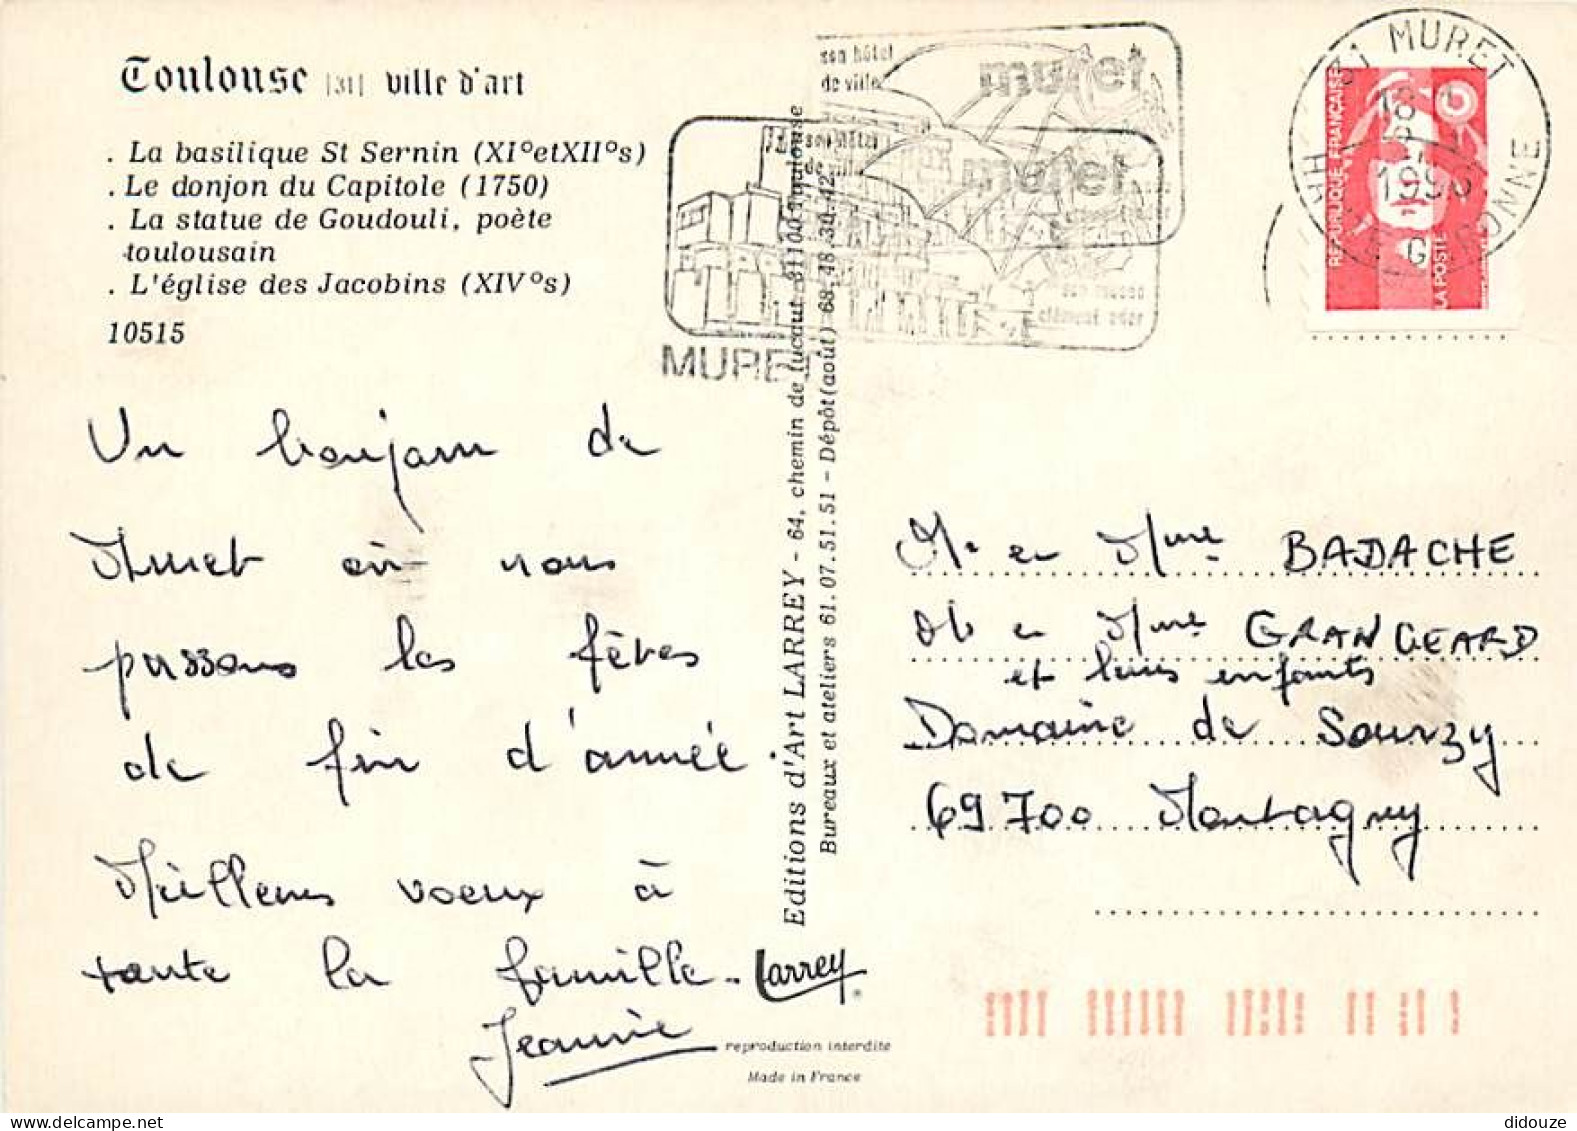 Toulouse [31] ville d'art
. La basilique St Sernin (XI°etXII°s)
. Le donjon du Capitole (1750)
. La statue de Goudouli, poète
toulousain
. L'église des Jacobins (XIV°s)
10515
son hôtel
de ville
muret
son hôtel
de ville
muret
son musée
clément ader
MURET
31 MURET
18
1993
HTE GARONNE
REPUBLIQUE FRANÇAISE
LA POSTE
Un bonjour de
Muret où nous
passons les fêtes
de fin d'année.
Meilleurs voeux à
toute la famille.
Jeannie
Editions d'Art LARREY - 64, chemin de tucaut 31100 Toulouse
Bureaux et ateliers 61.07.51.51 - Dépôt (août) 68.48.30.12
Larrey
reproduction interdite
Made in France
Mr et Mme BADACHE
Mr et Mme GRANGEARD
et leurs enfants
Domaine de Sourzy
69700 Montagny
didouze